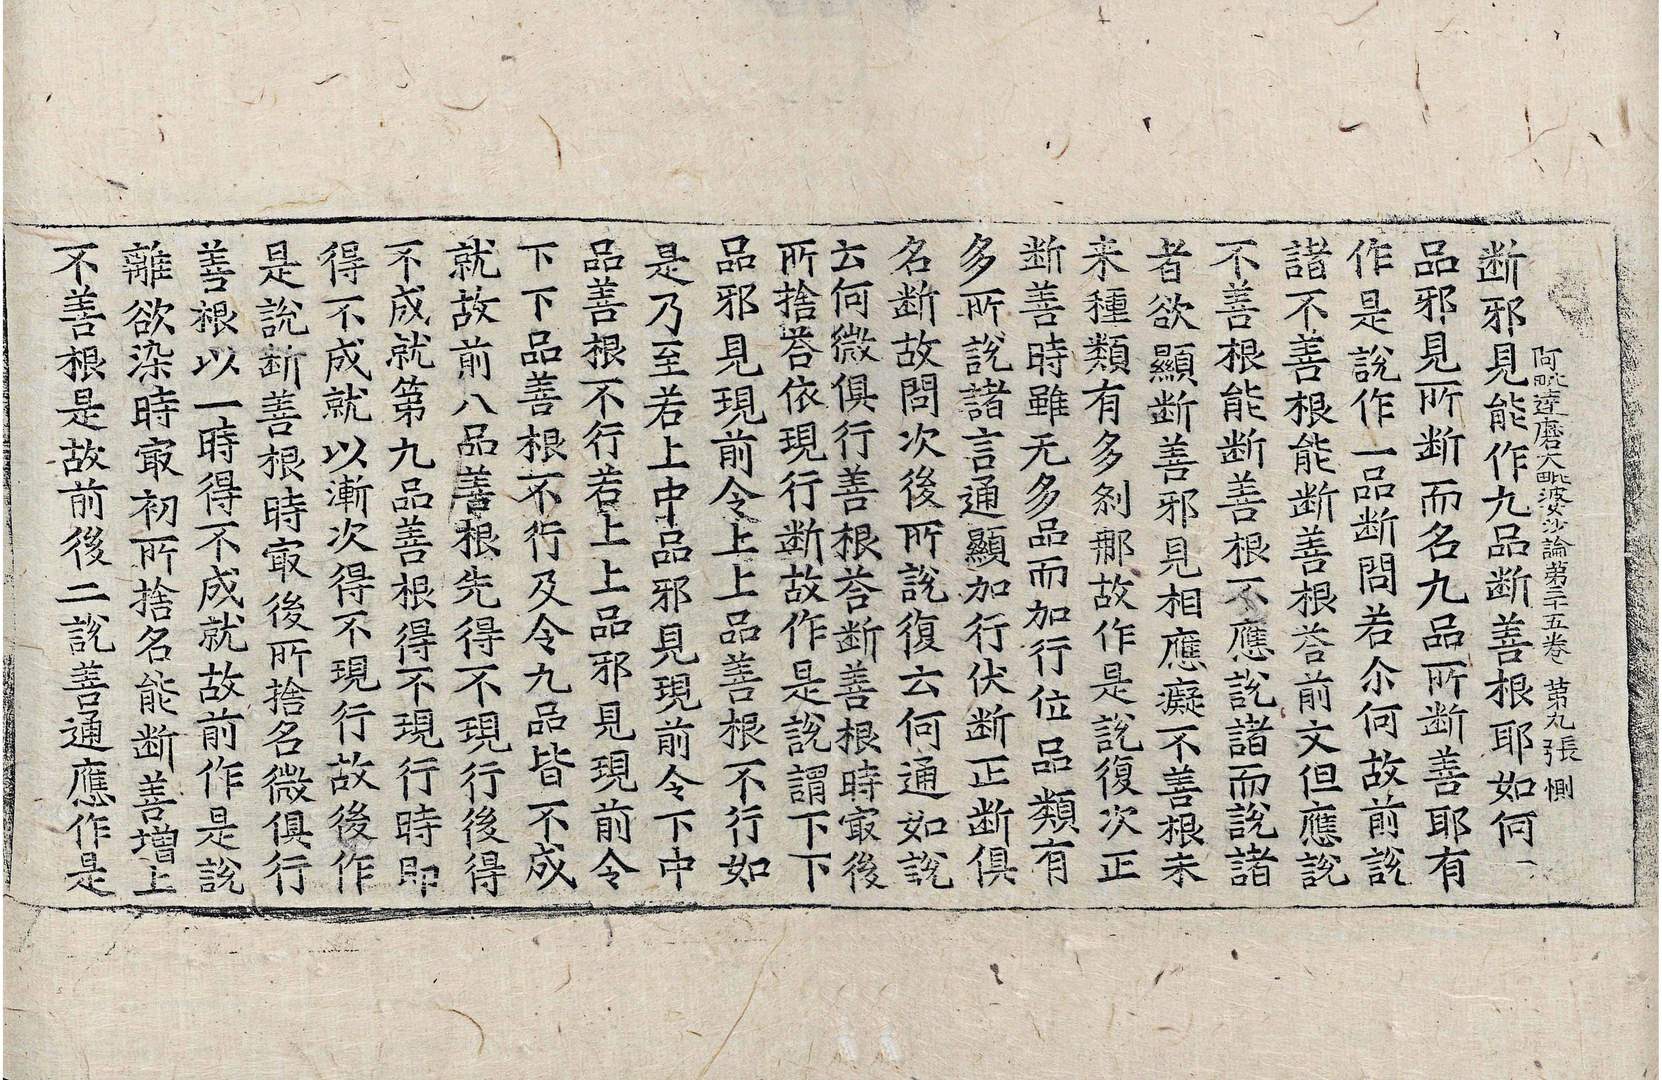 阿毗達磨大毗婆沙論第三十五卷 第九張 惻
斷邪見能作九品斷善根耶如何一
品邪見所斷而名九品所斷善耶有
作是說作一品斷問若尒何故前說
諸不善根能斷善根荅前文但應說
不善根能斷善根不應說諸而說諸
者欲顯斷善邪見相應癡不善根未
来種類有多刹那故作是說復次正
斷善時雖无多品而加行位品類有
多所說諸言通顯加行伏斷正斷俱
名斷故問次後所說復云何通如說
云何微俱行善根荅斷善根時㝡後
所捨荅依現行斷故作是說謂下下
品邪見現前令上上品善根不行如
是乃至若上中品邪見現前令下中
品善根不行若上上品邪見現前令
下下品善根不行及令九品皆不成
就故前八品善根先得不現行後得
不成就第九品善根得不現行時即
得不成就以漸次得不現行故後作
是說斷善根時㝡後所捨名微俱行
善根以一時得不成就故前作是說
離欲染時㝡初所捨名能斷善增上
不善根是故前後二說善通應作是